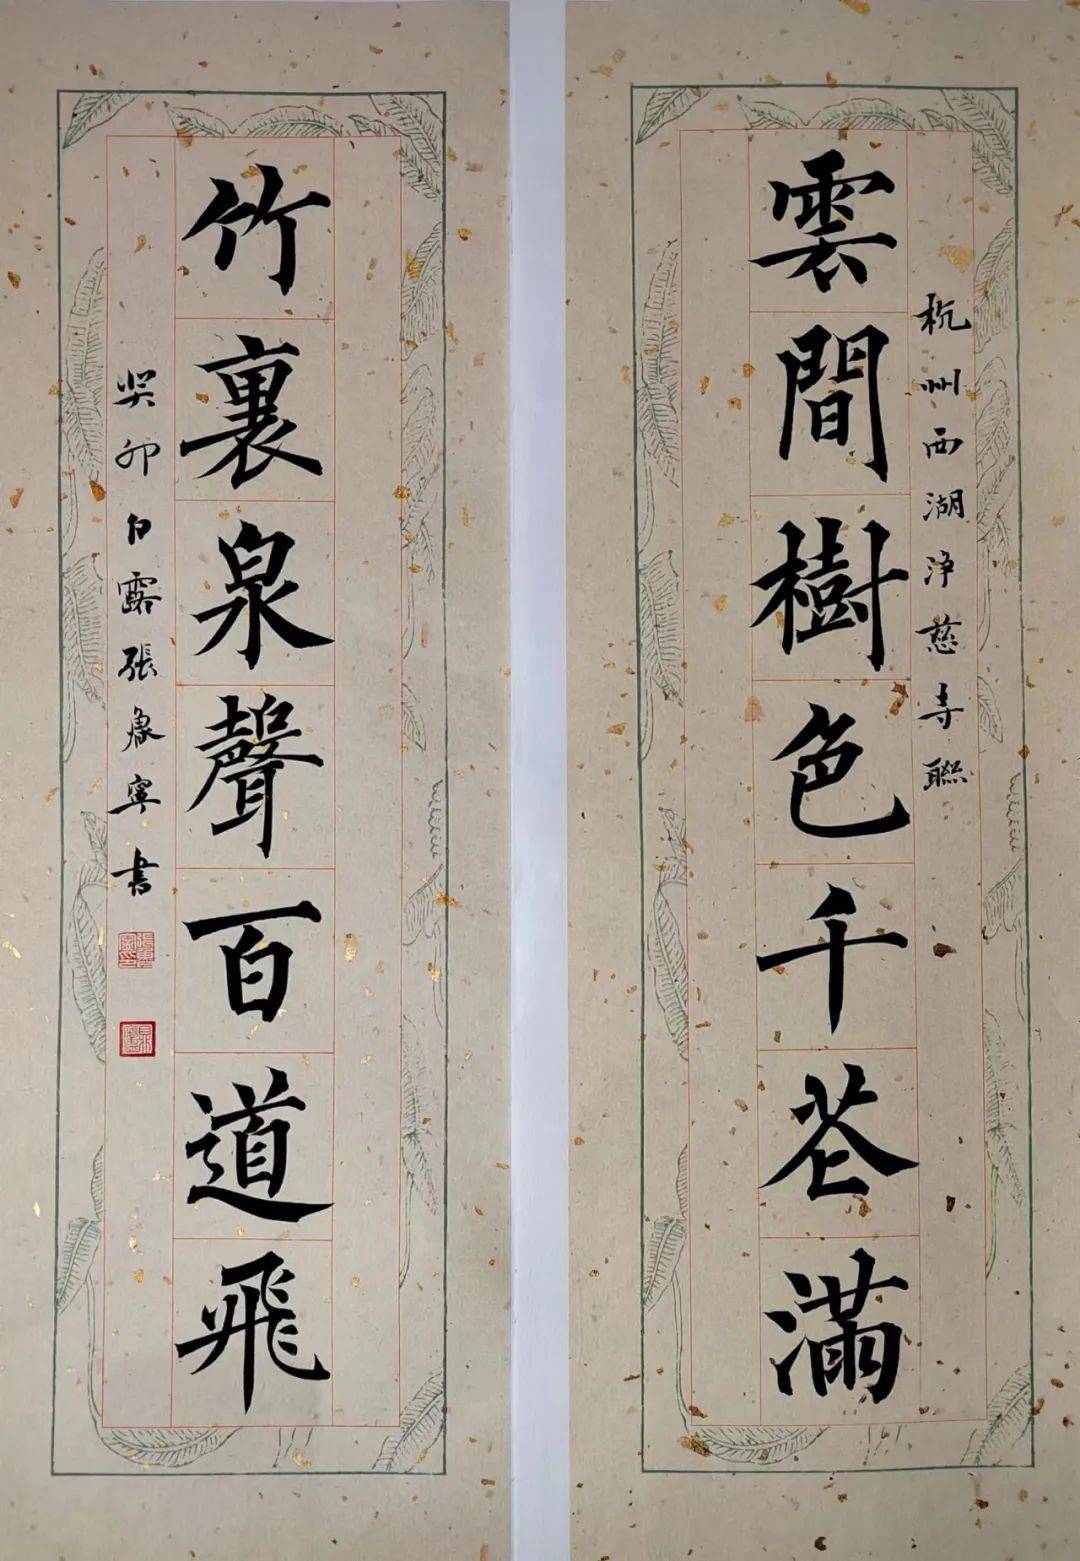 杭州西湖淨慈寺聯
雲間樹色千花滿
竹裏泉聲百道飛
癸卯白露張寧書